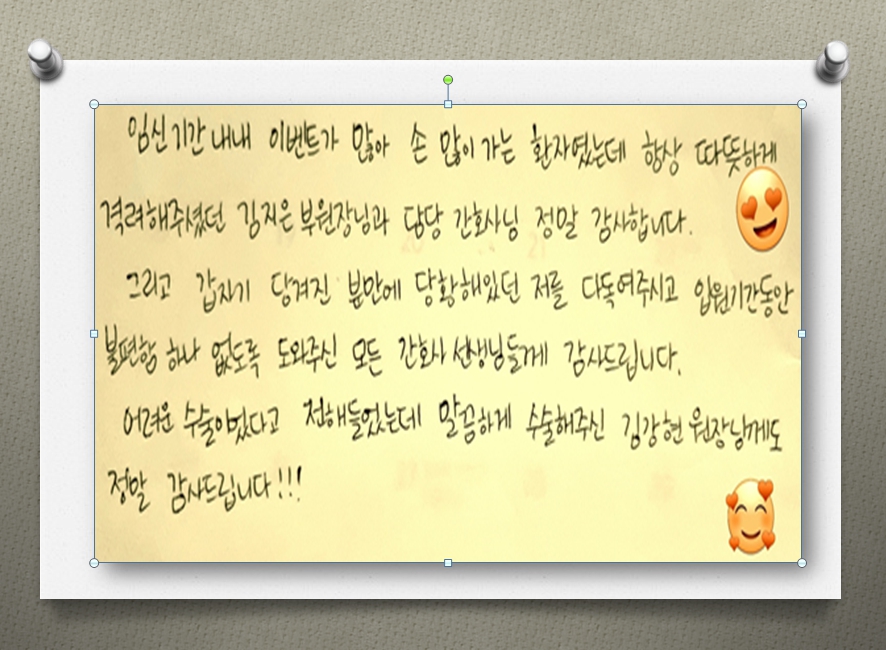 임신기간 내내 이벤트가 많아 손 많이 가는 환자였는데 항상 따뜻하게
격려해주셨던 김지은 부원장님과 담당 간호사님 정말 감사합니다.
그리고 갑자기 당겨진 분만에 당황해있던 저를 다독여주시고 입원기간동안
불편함 하나 없도록 도와주신 모든 간호사 선생님들께 감사드립니다.
어려운 수술이었다고 전해들었는데 말끔하게 수술해주신 김강현 원장님께도
정말 감사드립니다!!!